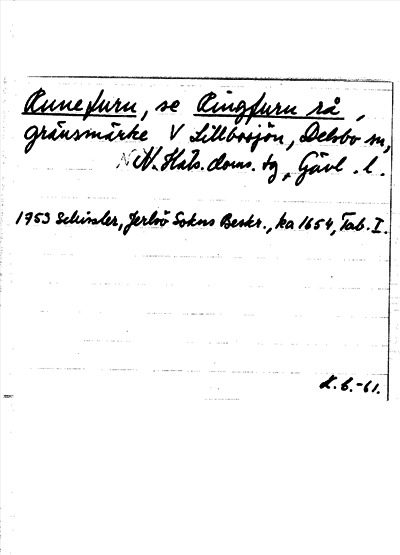 Runefuru, se Ringfuru rå,
gränsmärke V Lillbosjön, Delsbo sn,
N. Häls. doms. tg, Gävl. l.
1753 Schissler, Jerlsö Sokns Beskr., ka 1654, Tab. I.
L. b.-61.